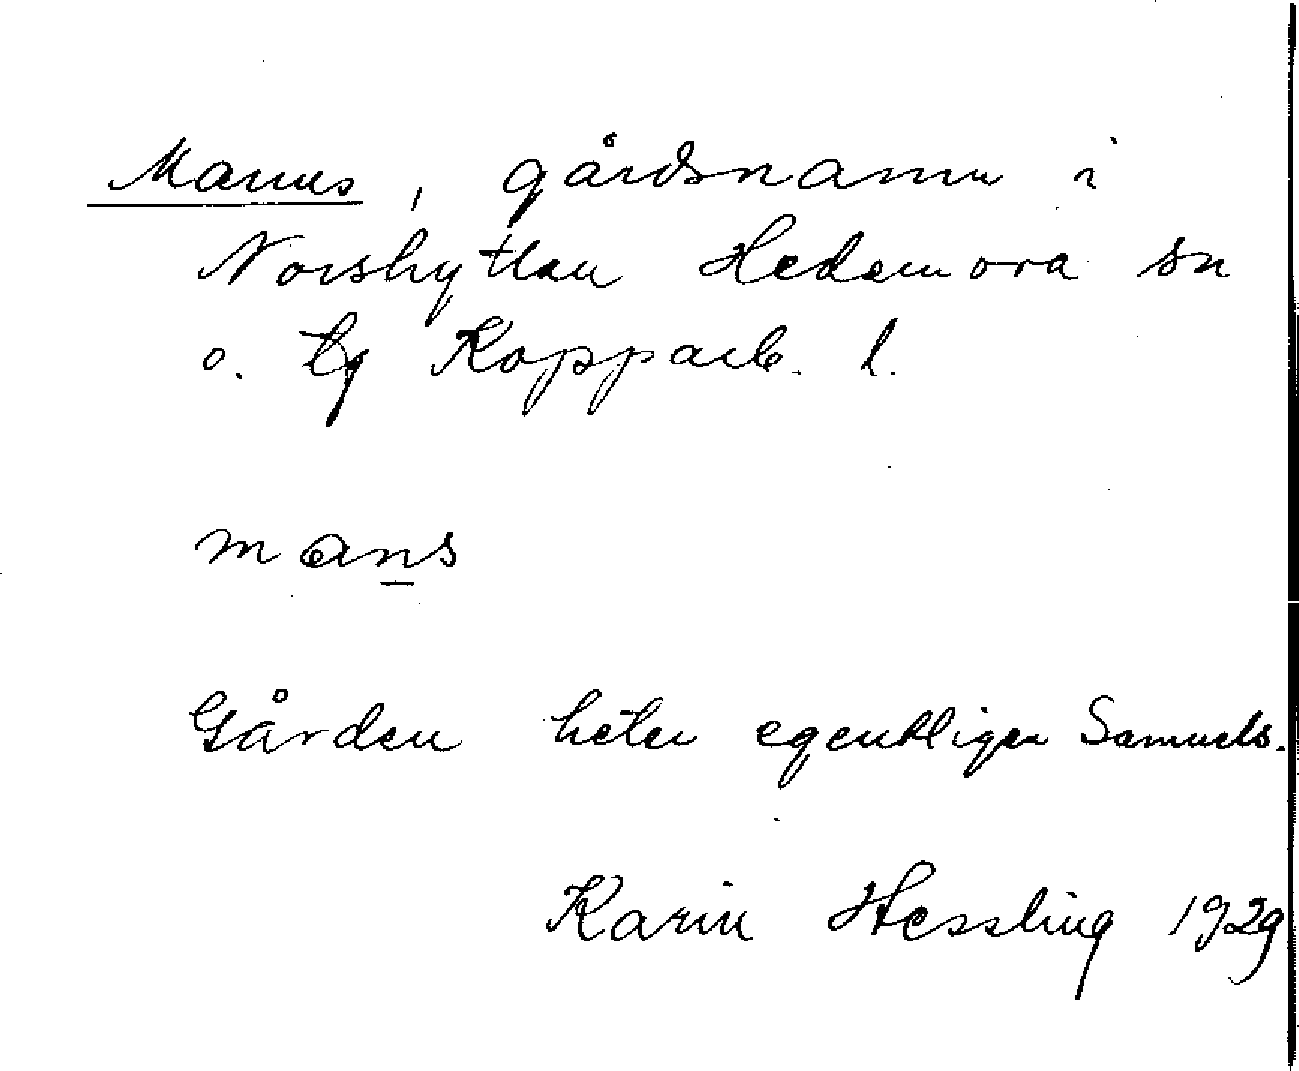 Manns, gårdsnamn i
Norshyttan Hedemora sn
o. tg Kopparb. l.
mans
Gården heter egentligen Samuels.
Karin Hessling 1929